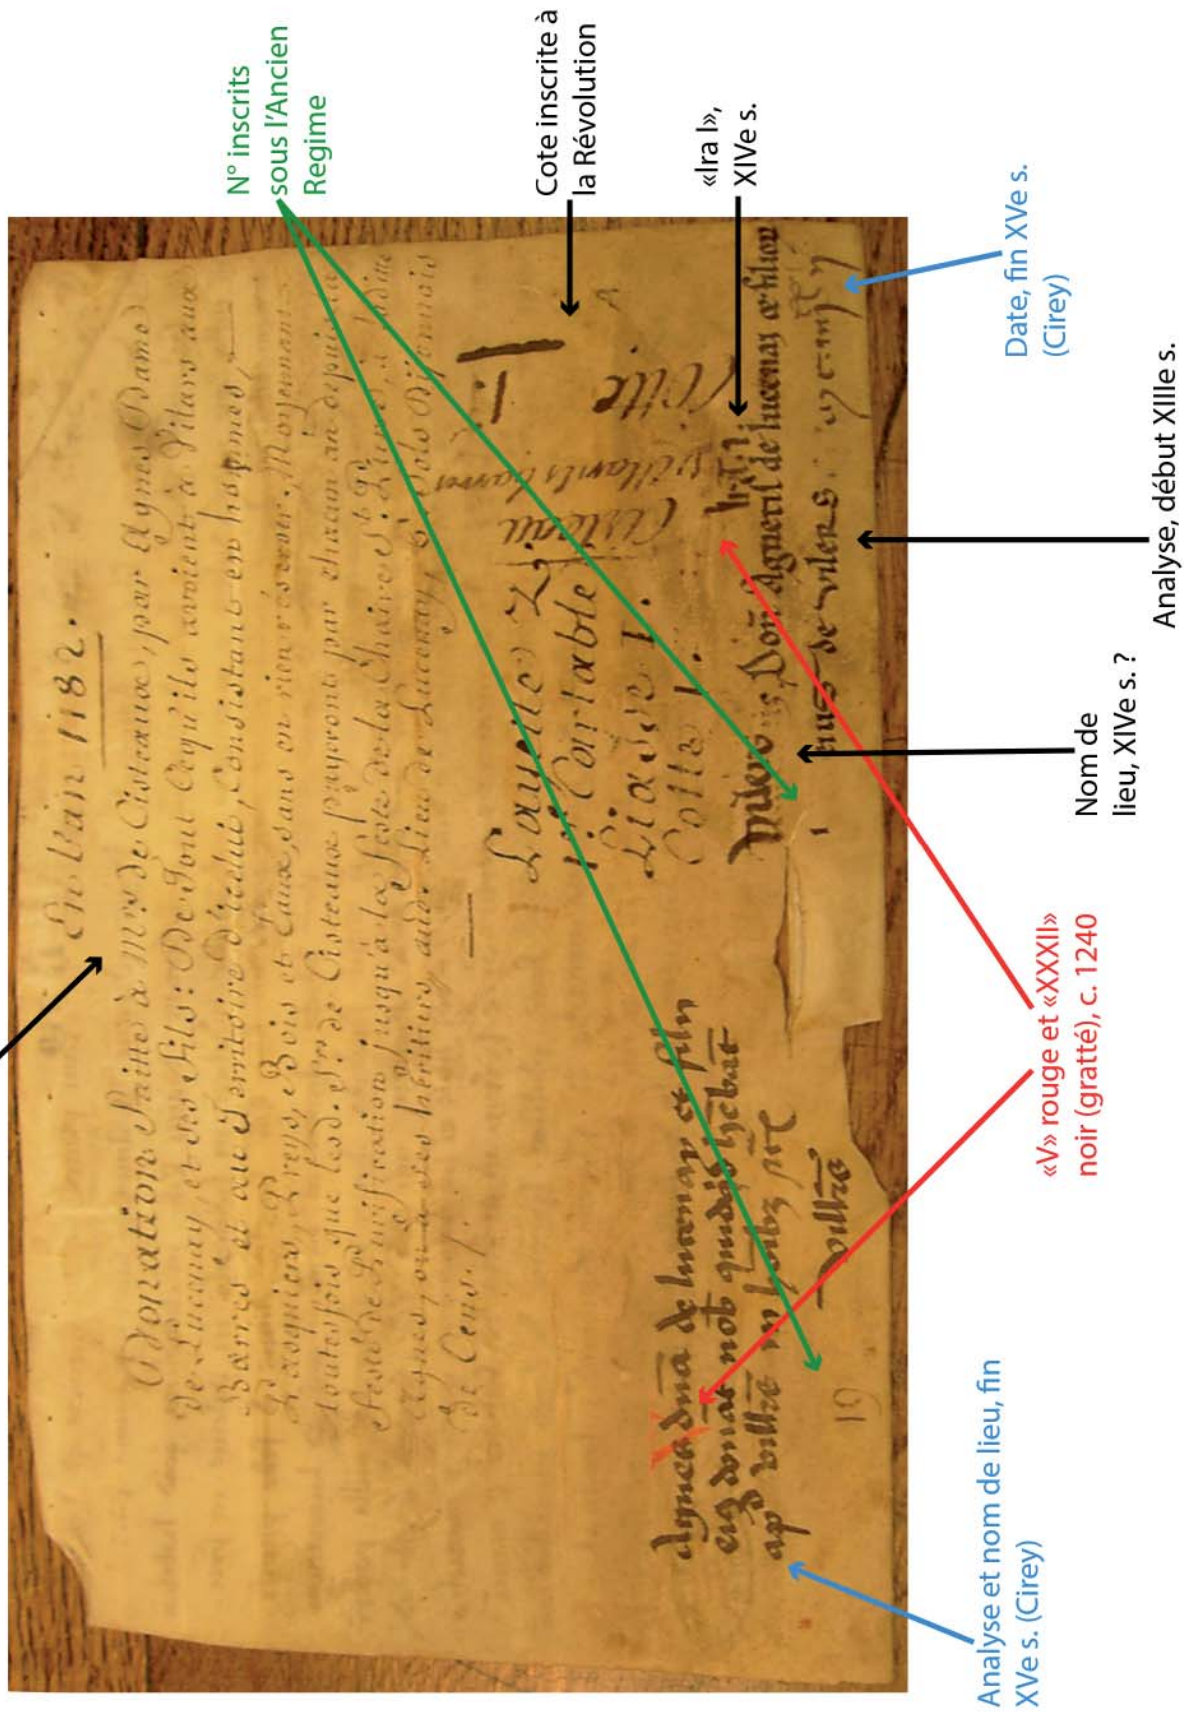 N° inscrits
sous l'Ancien
Regime
Cote inscrite à
la Révolution
«lra I»,
XIVe s.
Date, fin XVe s.
(Cirey)
Analyse, début XIIIe s.
Nom de
lieu, XIVe s. ?
«V» rouge et «XXXII»
noir (gratté), c. 1240
Analyse et nom de lieu, fin
XVe s. (Cirey)
En l'an 1182.
Donation faitte à Mrs de Cisteaux, par Agnes Dame
De Lucenay, et ses fils: De Tout Cequ'ils avoient à Vilars aux
Barres et au Territoire d'icelui, Consistant en hommes,
Preys, Bois et Eaux, sans en rien réserver. Moyennant
toutesfois que lesd. Srs de Cisteaux payeront par chacun an depuis la
jusqu'à la feste de la Chaire St Pierre, à laditte
Agnes, ou à ses héritiers, aud. Lieu de Lucenay, 5 Sols Dijonnois
De Cens.
Layette 2,
1. Cartable
Liasse 1.
Cotte 1.
Cisteau
villars
Cotte 1.
I
V
Agnes dna de lucenay et filii
eius donat nob quidquid hebat
apd villre in hoibz
villre
19
Agnetis de lucenay et filior
de vilers
1